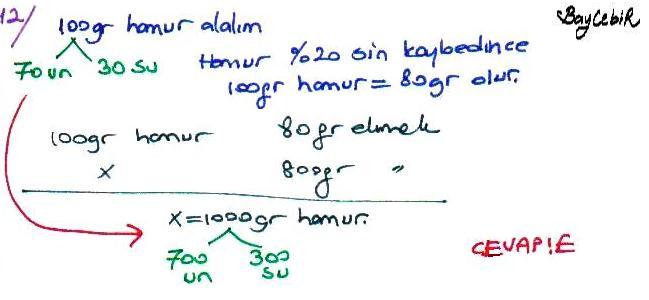 12/ 100gr hamur alalım
BayCebiR
70 un 30 su
Hamur %20 sin kaybedince
100gr hamur = 80gr olur.
100gr hamur 80gr ekmek
x 800gr "
x = 1000gr hamur.
700 un 300 su
CEVAP!E